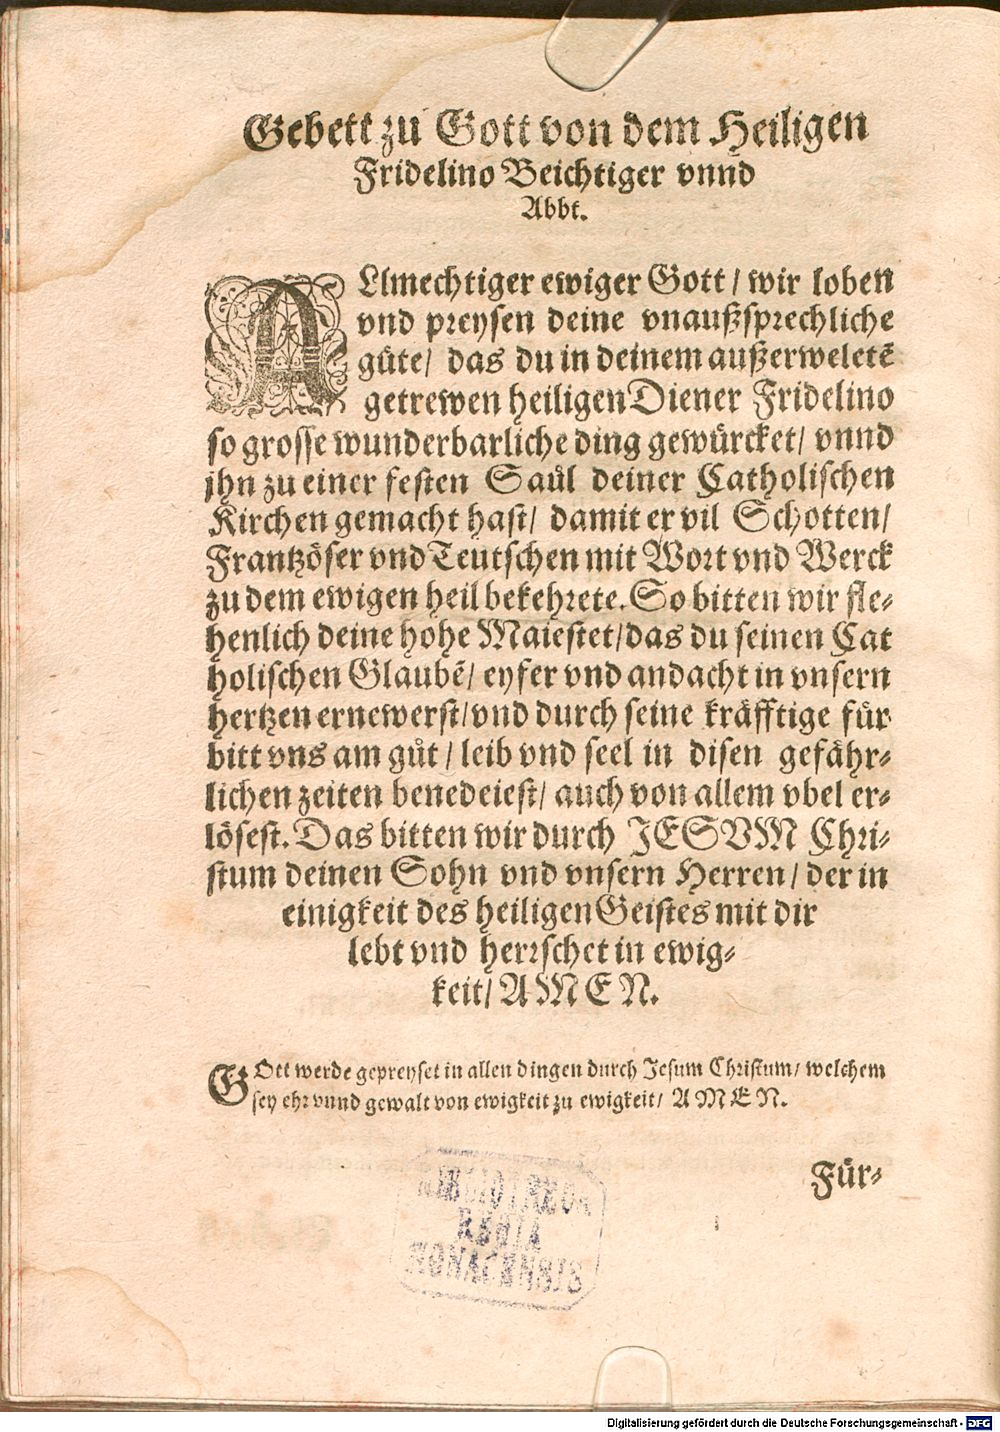 Gebett zu Gott von dem Heiligen
Fridelino Beichtiger vnnd
Abbt.
ALlmechtiger ewiger Gott / wir loben
vnd preysen deine vnaußsprechliche
güte / das du in deinem außerweletē
getrewen heiligen Diener Fridelino
so grosse wunderbarliche ding gewürcket / vnnd
jhn zu einer festen Saůl deiner Catholischen
Kirchen gemacht hast / damit er vil Schotten /
Frantzöser vnd Teutschen mit Wort vnd Werck
zu dem ewigen heil bekehrete. So bitten wir fle-
henlich deine hohe Maiestet / das du seinen Cat
holischen Glaubē / eyfer vnd andacht in vnsern
hertzen ernewerst / vnd durch seine kräfftige für
bitt vns am gůt / leib vnd seel in disen gefähr-
lichen zeiten benedeiest / auch von allem vbel er-
lösest. Das bitten wir durch JESVM Chri-
stum deinen Sohn vnd vnsern Herren / der in
einigkeit des heiligen Geistes mit dir
lebt vnd herrschet in ewig-
keit / AMEN.
GOtt werde gepreyset in allen dingen durch Jesum Christum / welchem
sey ehr vnnd gewalt von ewigkeit zu ewigkeit / AMEN.
Für-
BIBLIOTHECA
REGIA
MONACENSIS
Digitalisierung gefördert durch die Deutsche Forschungsgemeinschaft - DFG